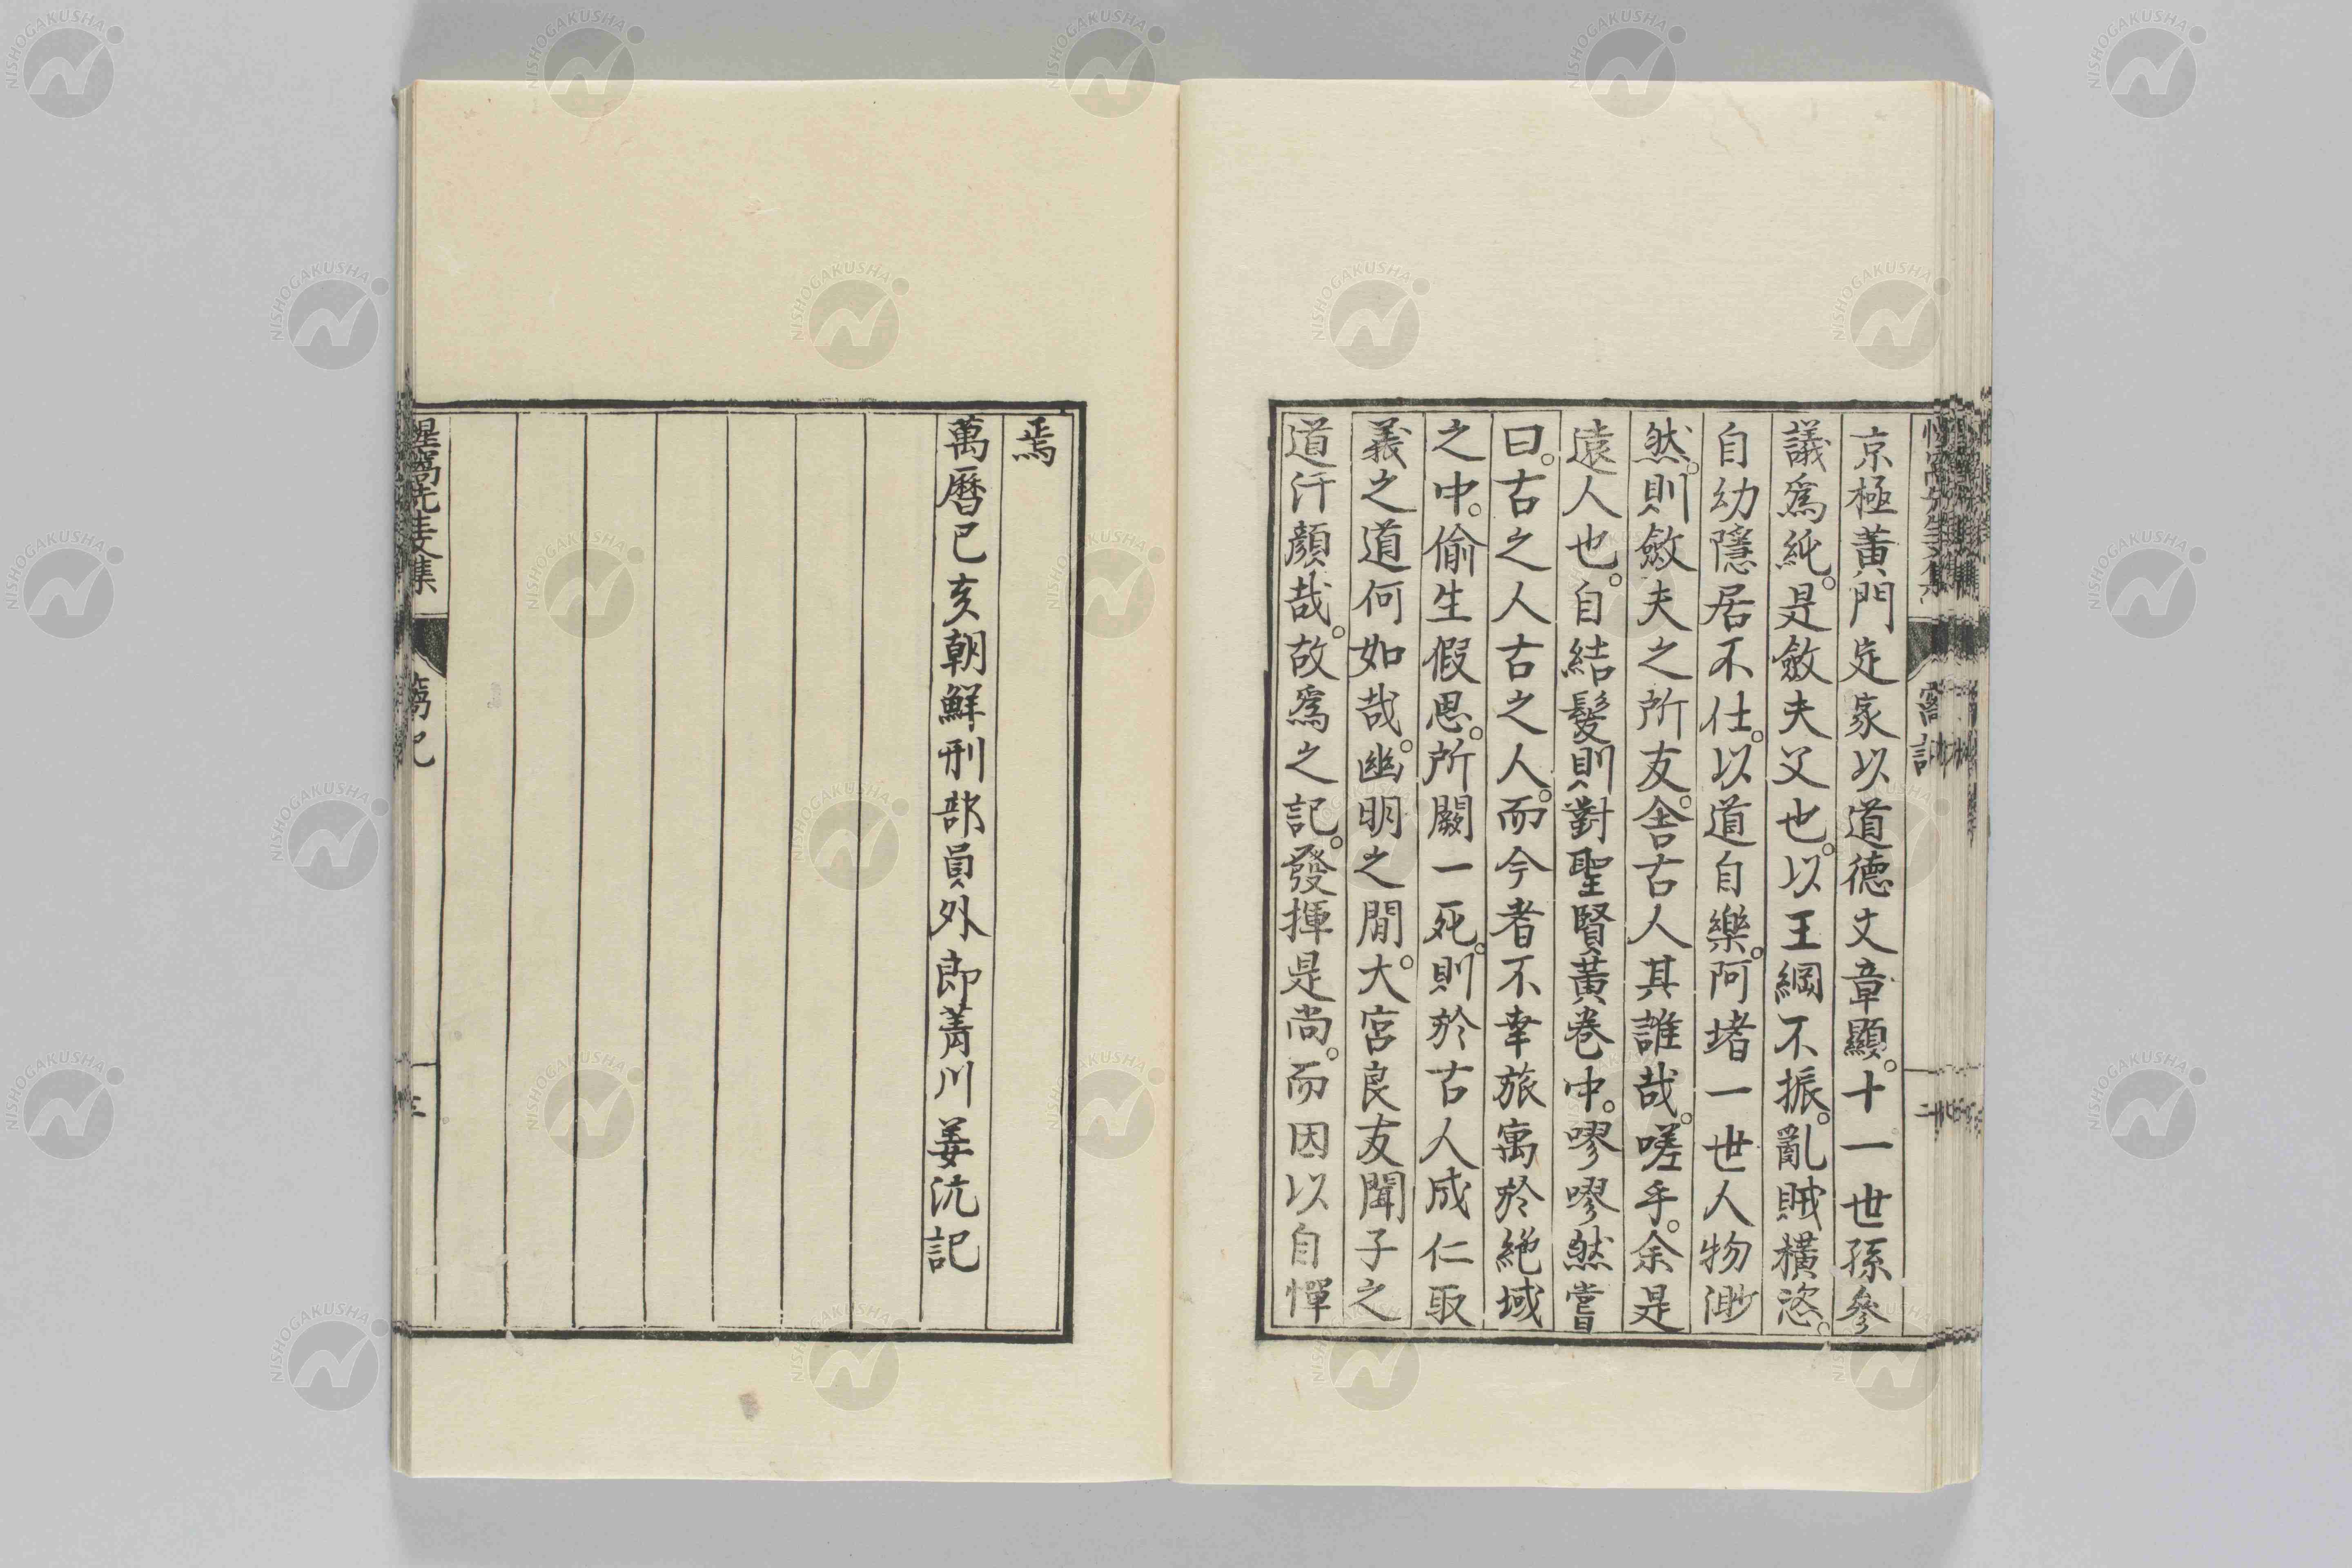 京極黃門定家以道德文章顯。十一世孫參
議爲純。是斂夫父也。以王綱不振。亂賊橫恣。
自幼隱居不仕。以道自樂。阿堵一世人物渺
然。則斂夫之所友。舍古人其誰哉。嗟乎。余是
遠人也。自結髮則對聖賢黃卷中。嘐嘐然嘗
曰。古之人古之人。而今者不幸旅寓於絶域
之中。偷生假思。所闕一死。則於古人成仁取
義之道何如哉。幽明之間。大宮良友聞子之
道汗顏哉。故爲之記。發揮是尚。而因以自憚
焉
萬曆己亥朝鮮刑部員外郎菁川姜沆記
惺窩先生文集
窩記
三
窩記
二
NISHOGAKUSHA